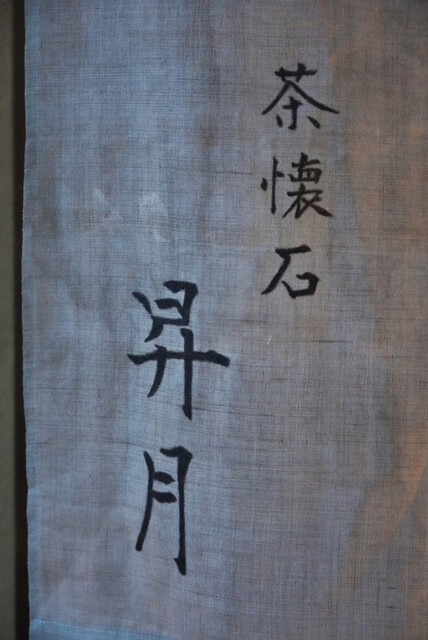 茶懐石
昇月